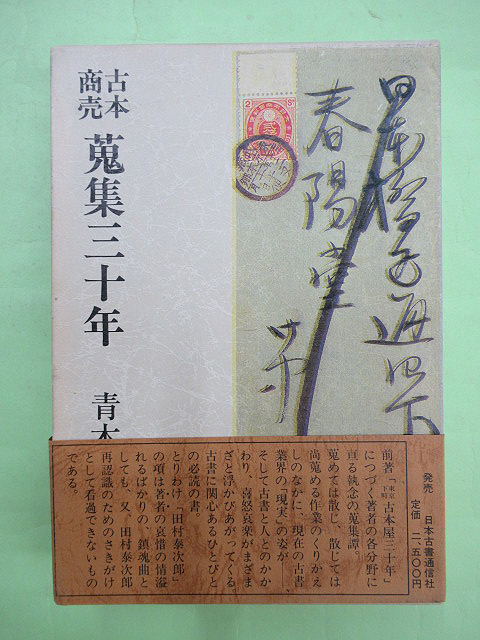 古本
商売
蒐集三十年
青木
2
Sn
日本橋區通四丁
春陽堂
発売 日本古書通信社
定価 二、五〇〇円
前著「東京下町古本屋三十年」
につづく著者の各分野に
亘る執念の蒐集譚。
蒐めては散じ、散じては
尚蒐める作業のくりかえ
しのなかに、現在の古書
業界の「現実」の姿が――
そして古書と人とのかか
わり、喜怒哀楽がまざま
ざと浮かびあがってくる
古書に関心あるひとびと
の必読の書。
とりわけ「田村泰次郎」
の項は著者の哀惜の情溢
れるばかりの、鎮魂曲と
しても、又、田村泰次郎
再認識のためのさきがけ
として看過できないもの
である。